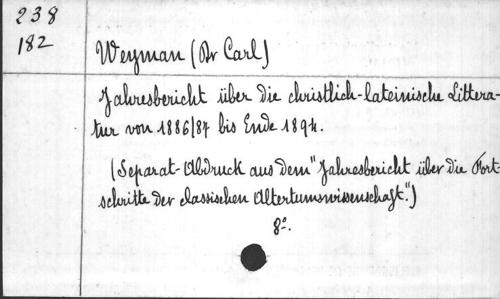 238
182
Weyman (Dr Carl)
Jahresbericht über die christlich-lateinische Littera-
tur von 1886/87 bis Ende 1894.
(Separat-Abdruck aus dem "Jahresbericht über die Fort-
schritte der classischen Altertumswissenschaft".)
8º.